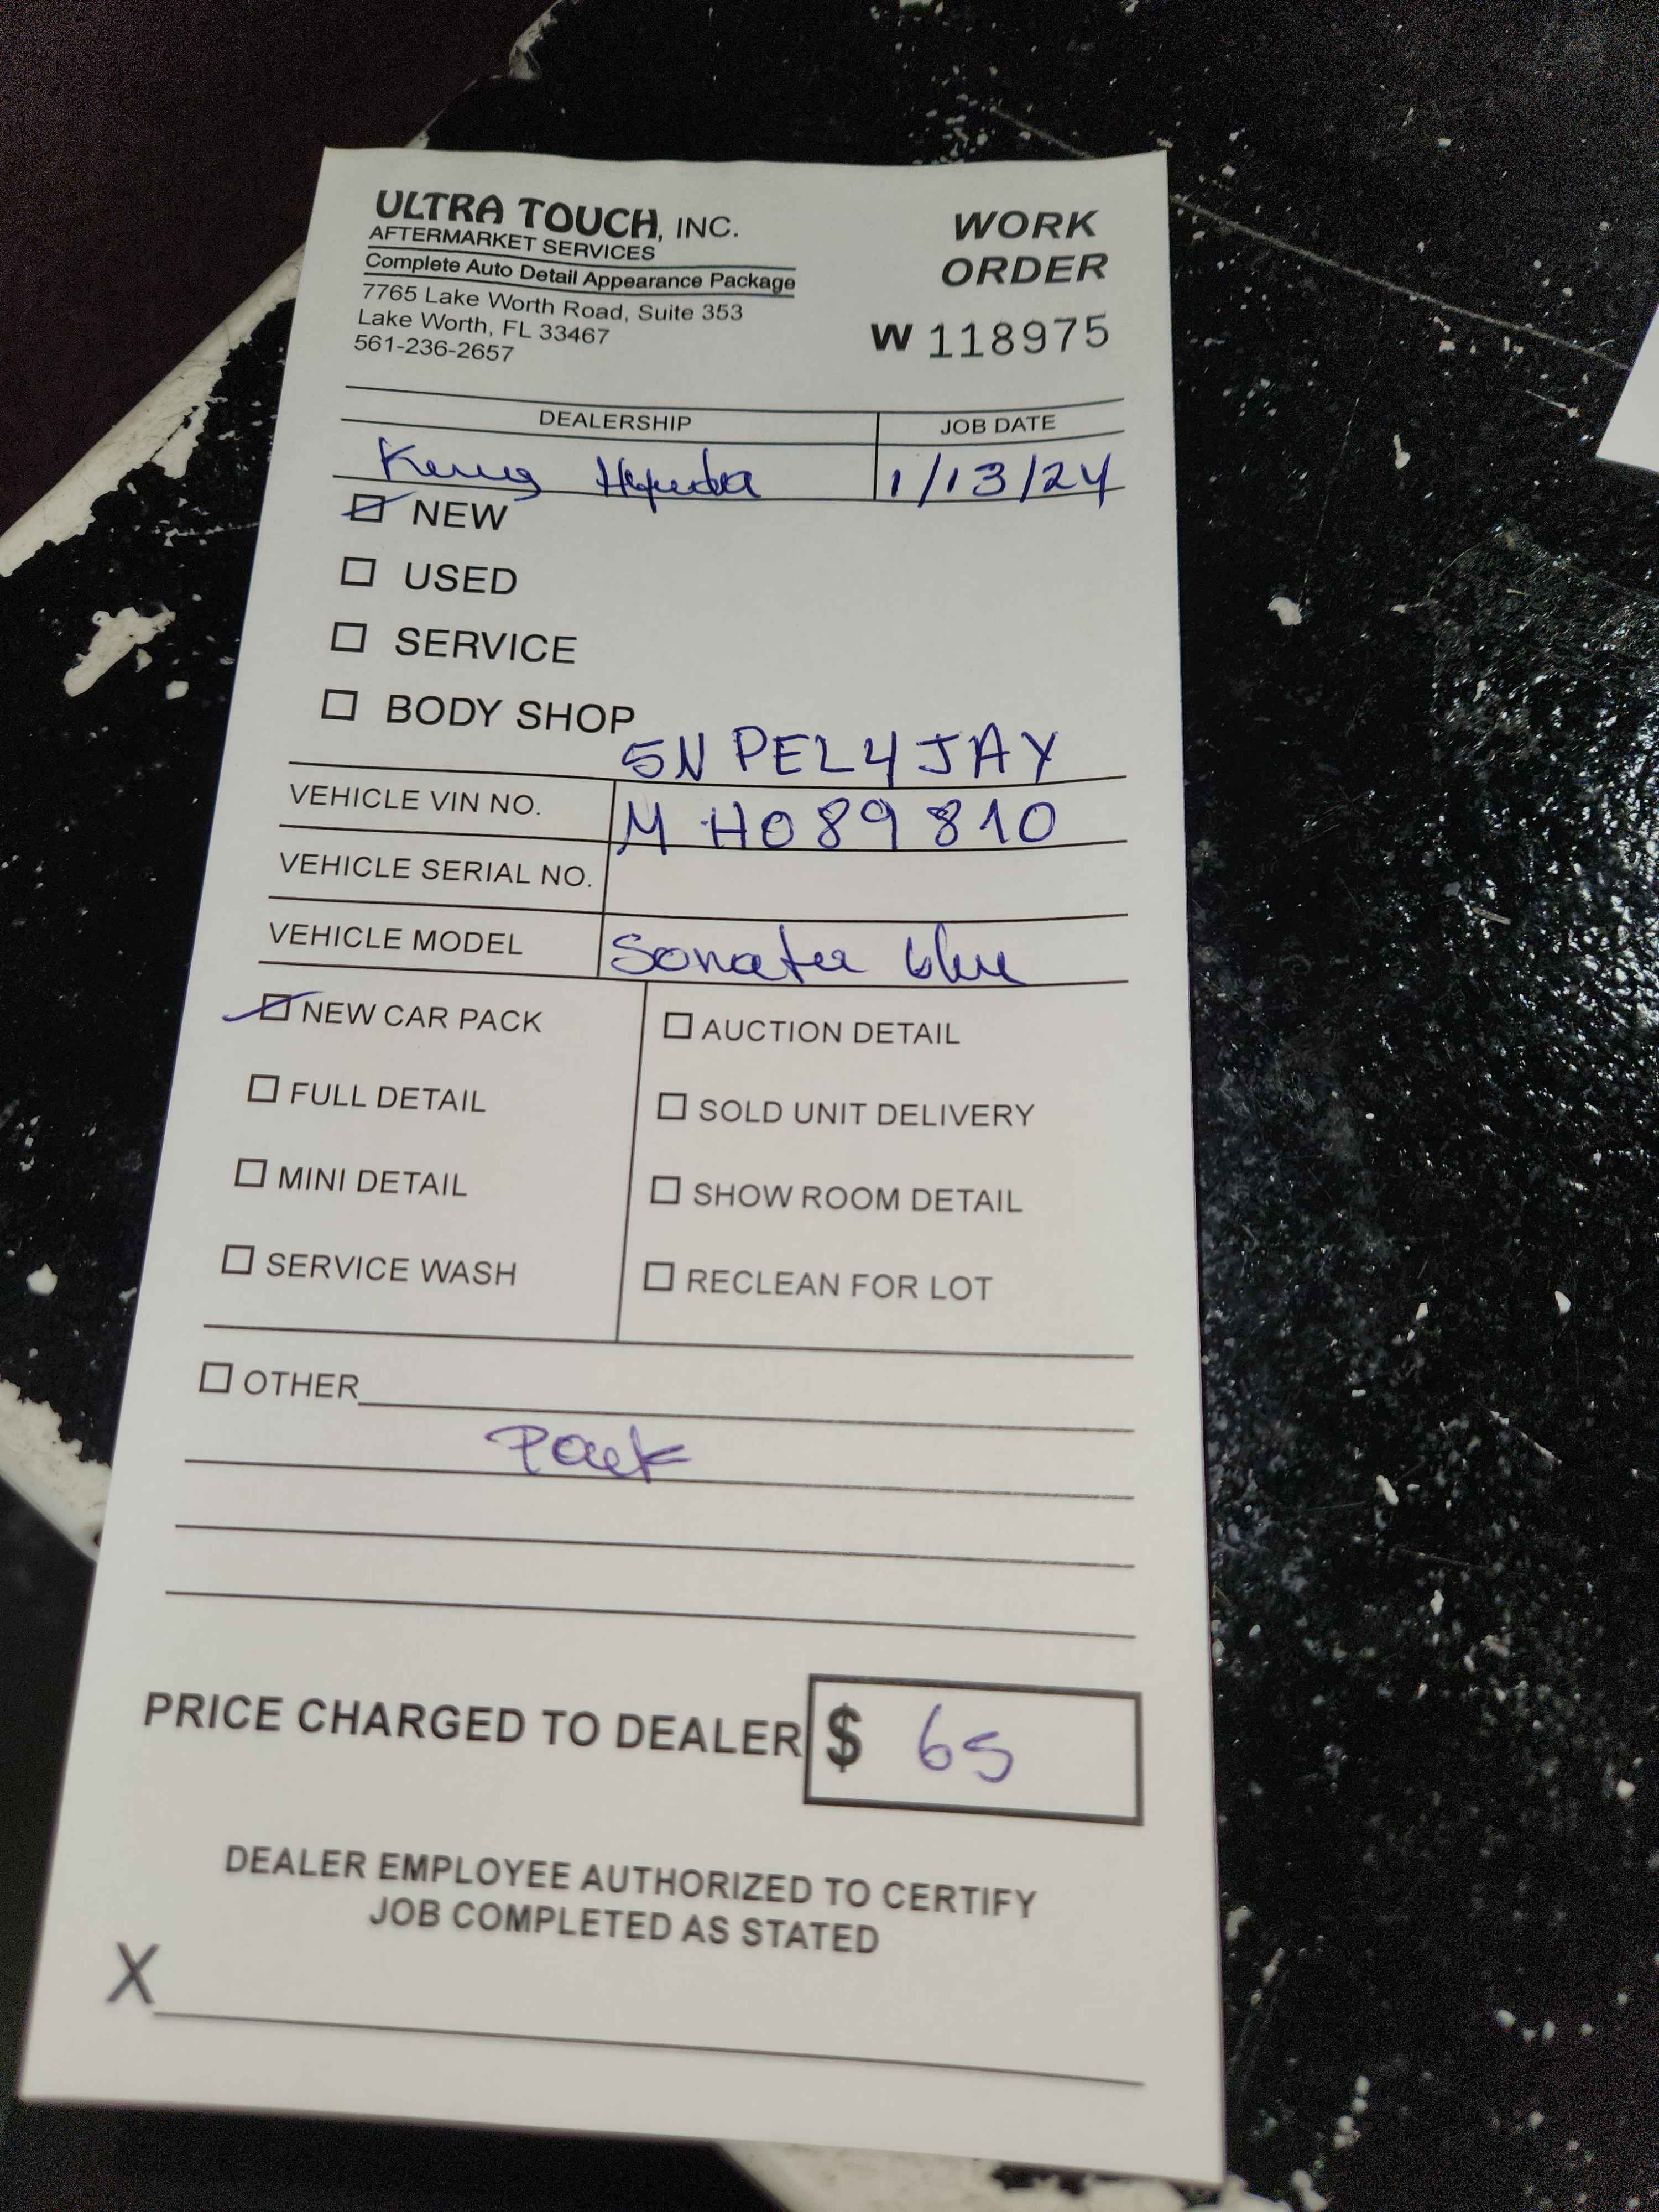 ULTRA TOUCH, INC.
AFTERMARKET SERVICES
Complete Auto Detail Appearance Package
7765 Lake Worth Road, Suite 353
Lake Worth, FL 33467
561-236-2657
WORK
ORDER
W 118975
DEALERSHIP JOB DATE
1/13/24
NEW
USED
SERVICE
BODY SHOP
5NPEL4JAY
VEHICLE VIN NO. MH089810
VEHICLE SERIAL NO.
VEHICLE MODEL Sonata blue
NEW CAR PACK AUCTION DETAIL
FULL DETAIL SOLD UNIT DELIVERY
MINI DETAIL SHOW ROOM DETAIL
SERVICE WASH RECLEAN FOR LOT
OTHER
Pack
PRICE CHARGED TO DEALER $ 65
DEALER EMPLOYEE AUTHORIZED TO CERTIFY
JOB COMPLETED AS STATED
X